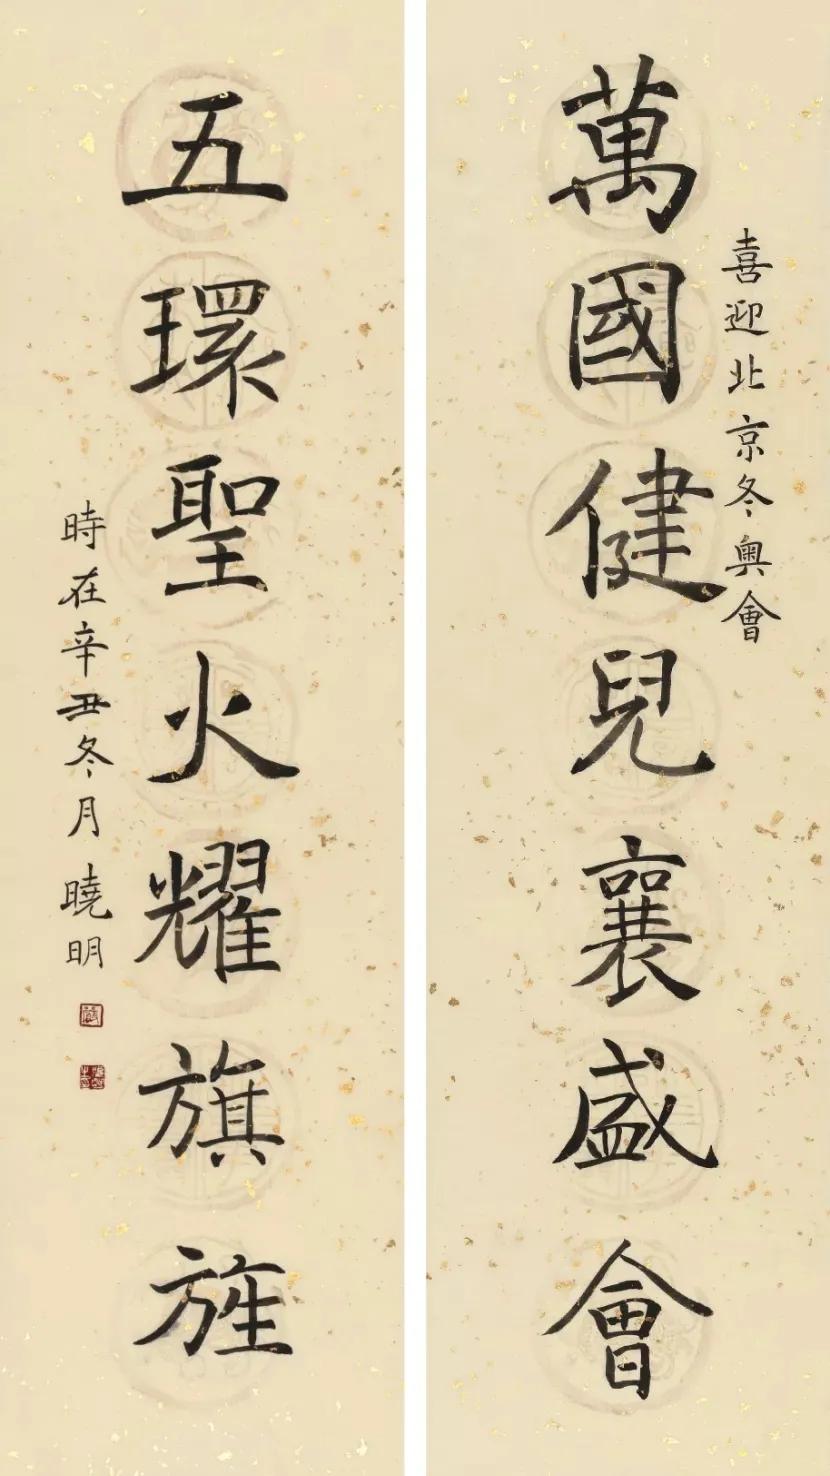 喜迎北京冬奥會
萬國健兒襄盛會
五環聖火耀旗旌
時在辛丑冬月曉明